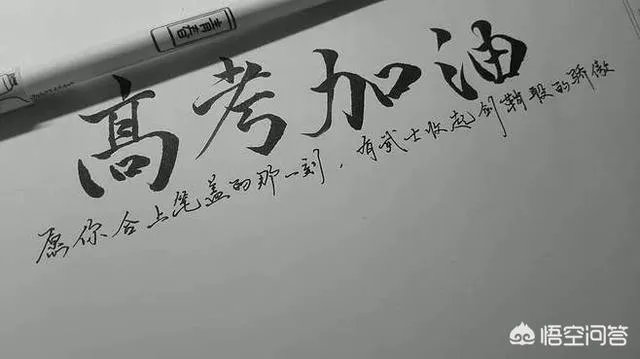 高考加油
愿你合上笔盖的那一刻，有武士收起剑鞘般的骄傲
悟空问答